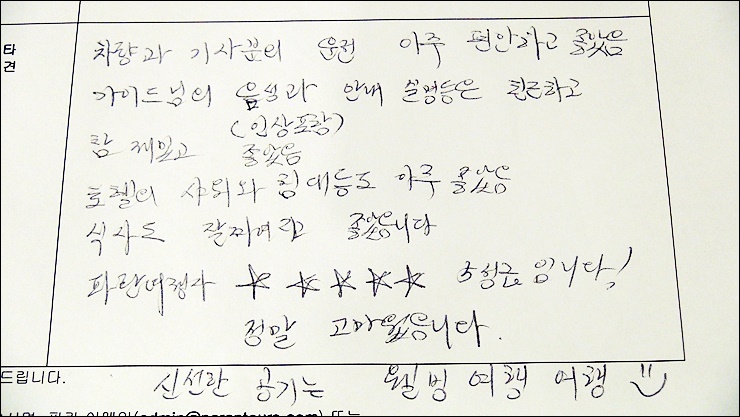 타
견
차량과 기사분의 운전 아주 편안하고 좋았음
가이드님의 음성과 안내 설명등은 친근하고
(인상포함)
참 재밌고 좋았음
호텔의 샤워와 침대등도 아주 좋았음
식사도 잘짜여 좋았습니다
파란여행사 ☆ ☆ ☆ ☆ ☆ 5성급 입니다!
정말 고마웠습니다.
드립니다.
신선한 공기는 웰빙 여행 여행